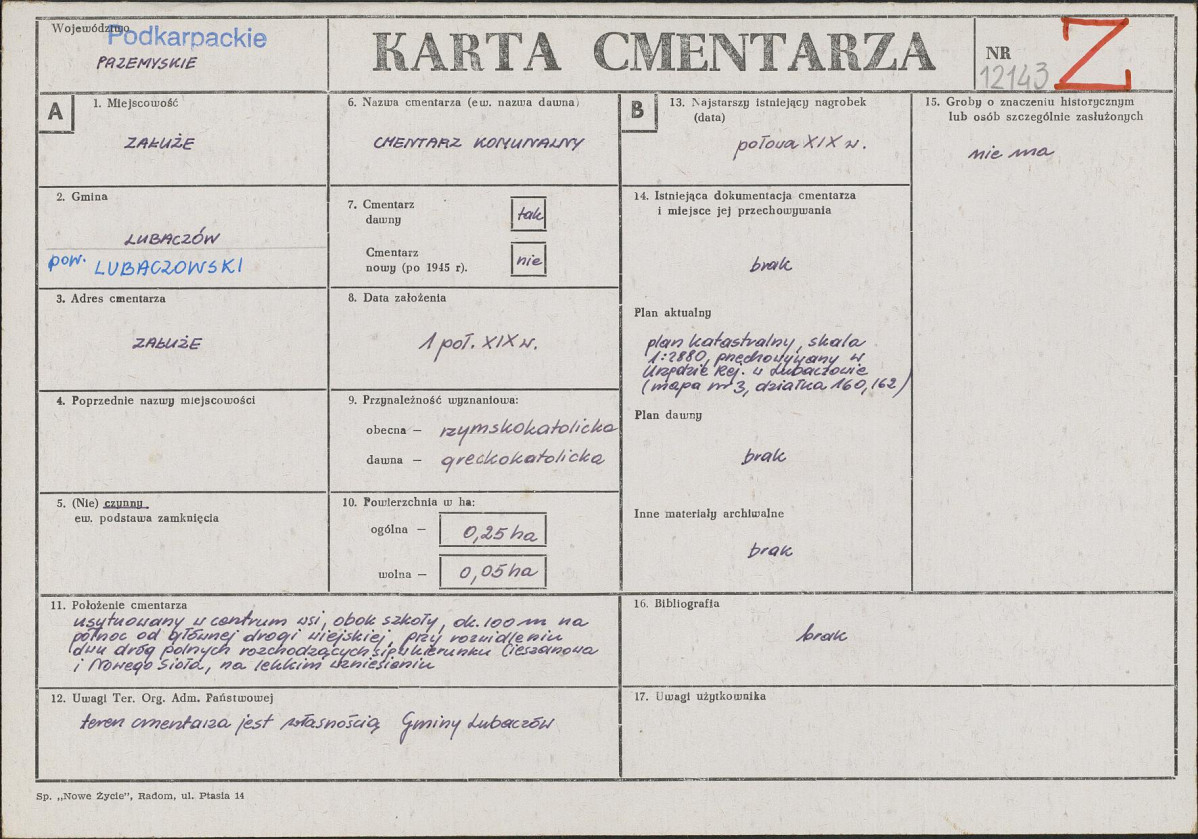 Województwo
Podkarpackie
PRZEMYSKIE
KARTA CMENTARZA
NR
12143
Z
A
1. Miejscowość
ZAŁUŻE
2. Gmina
LUBACZÓW
pow. LUBACZOWSKI
3. Adres cmentarza
ZAŁUŻE
4. Poprzednie nazwy miejscowości
5. (Nie) czynny
ew. podstawa zamknięcia
6. Nazwa cmentarza (ew. nazwa dawna)
CMENTARZ KOMUNALNY
7. Cmentarz
dawny
tak
Cmentarz
nowy (po 1945 r).
nie
8. Data założenia
1 poł. XIX w.
9. Przynależność wyznaniowa:
obecna — rzymskokatolicka
dawna — greckokatolicka
10. Powierzchnia w ha:
ogólna — 0,25 ha
wolna — 0,05 ha
11. Położenie cmentarza
usytuowany w centrum wsi, obok szkoły, ok. 100 m na
północ od głównej drogi wiejskiej, przy rozwidleniu
dwu dróg polnych rozchodzących się w kierunku Cieszanowa
i Nowego Sioła, na lekkim wzniesieniu
12. Uwagi Ter. Org. Adm. Państwowej
teren cmentarza jest własnością Gminy Lubaczów
B
13. Najstarszy istniejący nagrobek
(data)
połowa XIX w.
14. Istniejąca dokumentacja cmentarza
i miejsce jej przechowywania
brak
Plan aktualny
plan katastralny, skala
1:2880, przechowywany w
Urzędzie Rej. w Lubaczowie
(mapa nr 3, działka 160, 162)
Plan dawny
brak
Inne materiały archiwalne
brak
15. Groby o znaczeniu historycznym
lub osób szczególnie zasłużonych
nie ma
16. Bibliografia
brak
17. Uwagi użytkownika
Sp. „Nowe Życie”, Radom, ul. Ptasia 14